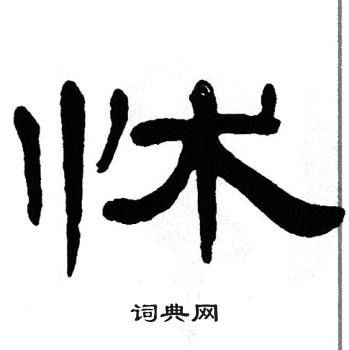 怵
词典网